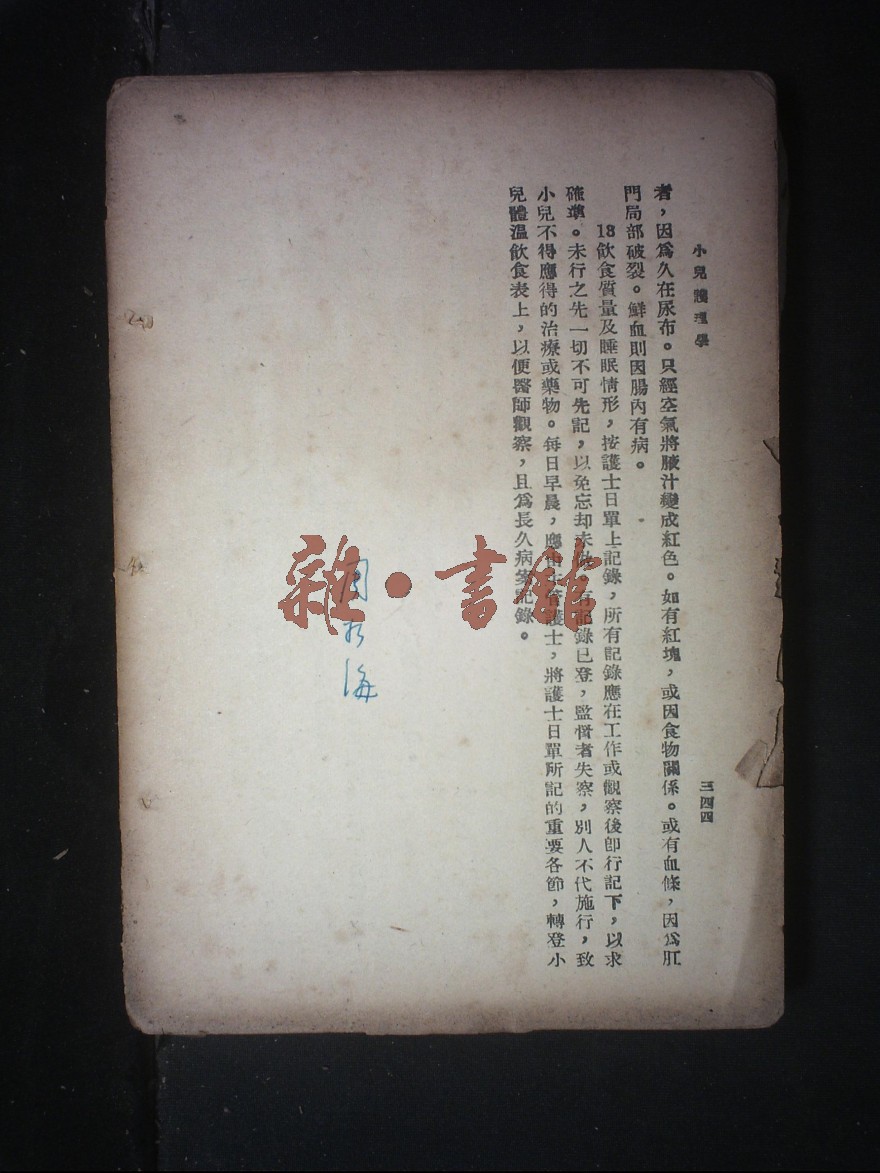 小兒護理學
三四四
者，因爲久在尿布。只經空氣將腋汁變成紅色。如有紅塊，或因食物關係。或有血條，因爲肛
門局部破裂。鮮血則因腸內有病。
18飲食質量及睡眠情形，按護士日單上記錄，所有記錄應在工作或觀察後卽行記下，以求
確準。未行之先一切不可先記，以免忘却未做，記錄已登，監督者失察，別人不代施行，致
小兒不得應得的治療或藥物。每日早晨，應護士，將護士日單所記的重要各節，轉登小
兒體溫飲食表上，以便醫師觀察，且爲長久病案記錄。
雜·書館
海